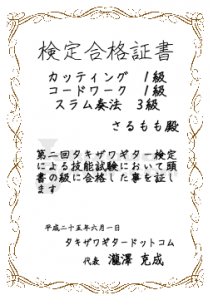 検定合格証書
カッティング 1級
コードワーク 1級
スラム奏法 3級
さるもも殿
第二回タキザワギター検定
による技能試験において頭
書の級に合格した事を証し
ます
平成二十五年六月一日
タキザワギタードットコム
代表 瀧澤 克成